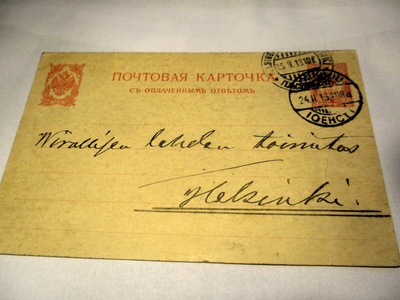 ПОЧТОВАЯ КАРТОЧКА
СЪ ОПЛАЧЕННЫМЪ ОТВѢТОМЪ.
24.II.13
IOENSU
Wirallisen lehden toimitus
Helsinki.